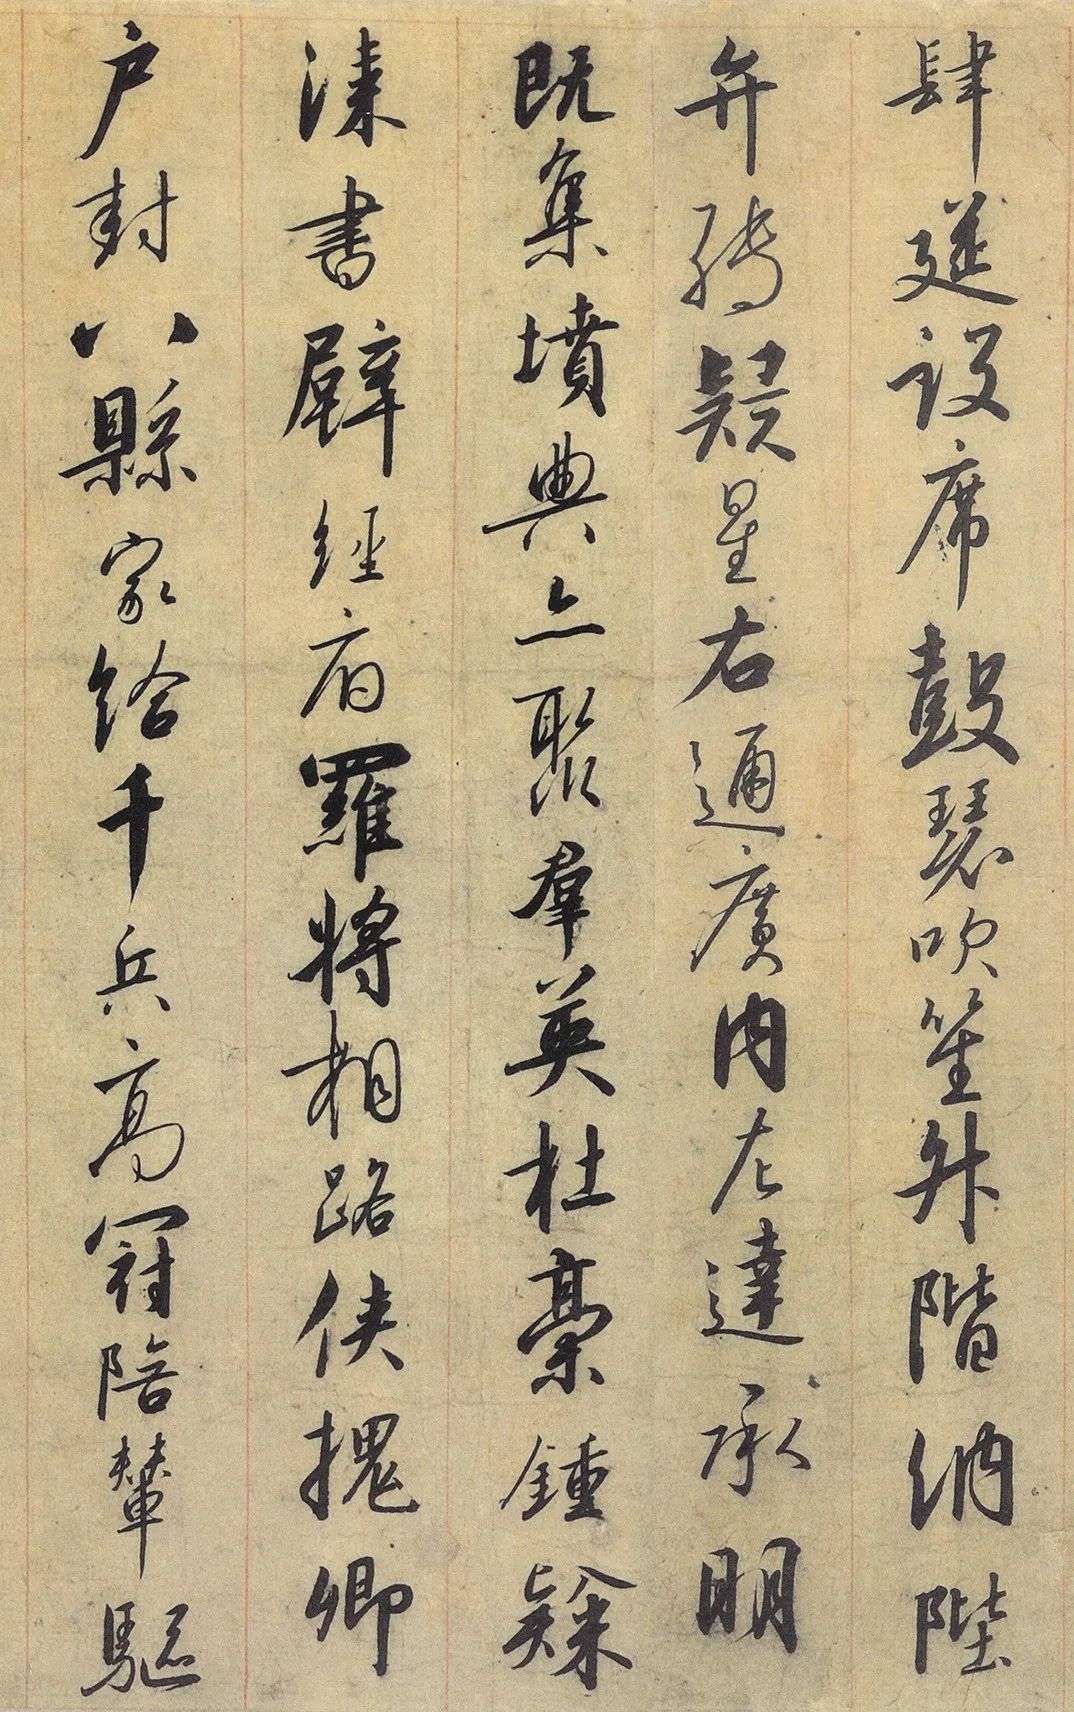 肆筵設席鼓瑟吹笙升階納陛
弁轉疑星右通廣內左達承明
既集墳典亦聚羣英杜稾鍾隸
漆書壁經府羅將相路俠槐卿
户封八縣家給千兵高冠陪輦驅